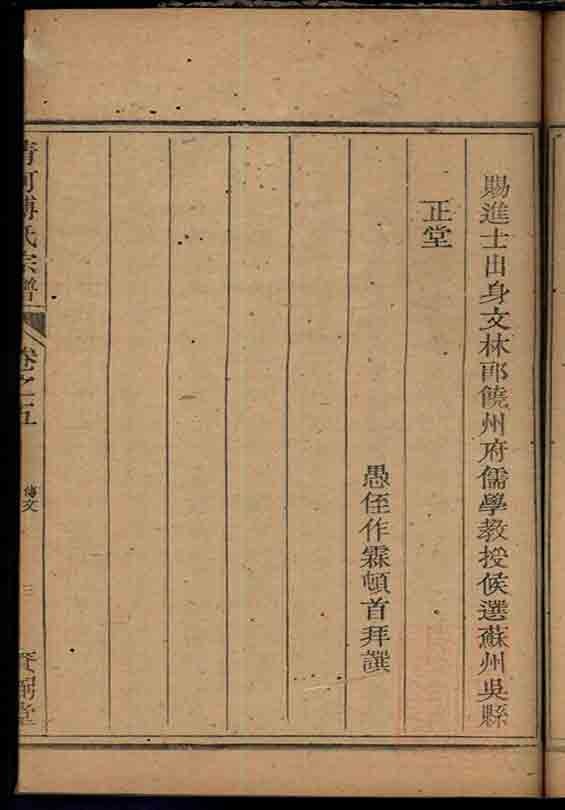 賜進士出身文林郎饒州府儒學教授候選蘇州吳縣
正堂
愚侄作霖頓首拜譔
清河傅氏宗譜
卷之五
傳文
三
堂